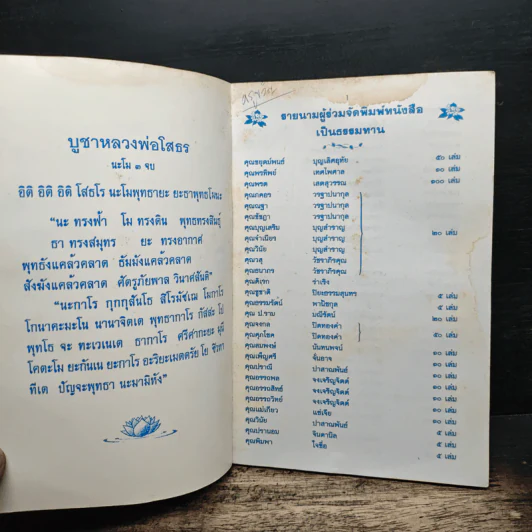 บูชาหลวงพ่อโสธร
นะโม ๓ จบ
อิติ อิติ อิติ โสธโร นะโมพุทธายะ ยะธาพุทธโมนะ
"นะ ทรงฟ้า โม ทรงดิน พุทธทรงสินธุ์
ธา ทรงสมุทร ยะ ทรงอากาศ
พุทธังแคล้วคลาด ธัมมังแคล้วคลาด
สังฆังแคล้วคลาด ศัตรูภัยพาล วินาศสันติ"
"นะกาโร กุกกุสันโธ สิโรมัชเฌ โมกาโร
โกนาคะมะโน นานาจิตเต พุทธากาโร กัสสะโป
พุทโธ จะ ทะเวเนเต ธากาโร ศรีศากะยะ มุนี
โคตะโม ยะกันเน ยะกาโร อะริยะเมตตรัย โย ชิวหา
ทีเต ปัญจะพุทธา นะมามิหัง"
รายนามผู้ร่วมจัดพิมพ์หนังสือ
เป็นธรรมทาน
คุณชยุตม์พนธ์ บุญเลิศอุทัย ๕๐ เล่ม
คุณพรทิพย์ เทศไพศาล ๑๐ เล่ม
คุณพรต เสตสุวรรณ ๑๐๐ เล่ม
คุณกคอร วรฐาปนากุล
คุณณฐา วรฐาปนากุล
คุณชัชฎา วรฐาปนากุล
คุณบุญเสริม บุญสำราญ ๒๐ เล่ม
คุณจำเนียร บุญสำราญ
คุณวินัย บุญสำราญ
คุณวสุ วัชราภิรคุณ
คุณธนากร วัชราภิรคุณ
คุณดิเรก ร่าเริง
คุณชูชาติ ปิยะธรรมสุนทร ๕ เล่ม
คุณธรรมรัตน์ พานิชกุล ๕ เล่ม
คุณ ป.ราม มณีรัตน์ ๒๐ เล่ม
คุณจงกล ปิดทองคำ
คุณศุภโชค ปิดทองคำ ๕๐ เล่ม
คุณสมพงษ์ นันทพจน์ ๑๐ เล่ม
คุณเพ็ญศรี จั่นอาจ ๑๐ เล่ม
คุณปราณี จงเจริญจิตต์ ๑๐ เล่ม
คุณอรรถพล จงเจริญจิตต์ ๑๐ เล่ม
คุณอรรถสิทธิ์ จงเจริญจิตต์ ๑๐ เล่ม
คุณอรรถวิทย์ จงเจริญจิตต์ ๑๐ เล่ม
คุณแม่เกียว แซ่เจีย ๑๐ เล่ม
คุณวินัย ปาสาณพันธ์ ๑๐ เล่ม
คุณปรานอม จินดานิล ๕ เล่ม
คุณพิมพา ใจซื่อ ๕ เล่ม